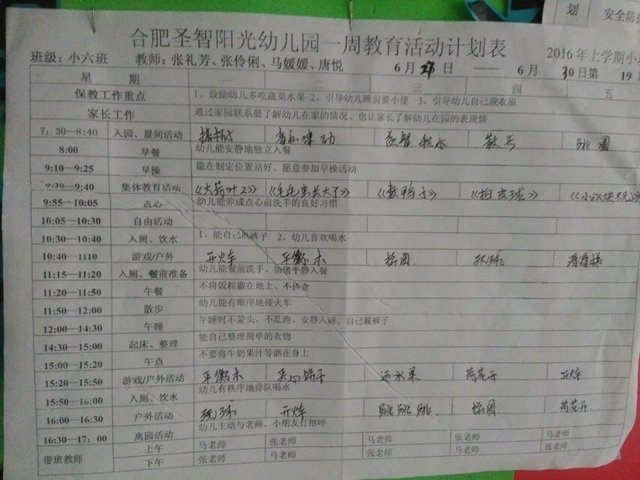 划 安全防
合肥圣智阳光幼儿园一周教育活动计划表
班级：小六班 教师：张礼芳、张伶俐、马媛媛、唐悦 6月27日 — 6月30日 第19 2016年上学期小
星 期 三 四 五
保教工作重点 1、鼓励幼儿多吃蔬菜水果 2、引导幼儿睡前要小便 3、引导幼儿自己脱衣服
家长工作 通过家园联系册了解幼儿在家的情况，也让家长了解幼儿在园的表现情
7：30—8:40 入园、晨间活动
8:00 早餐 幼儿能安静地独立入餐
9:10—9:25 早操 能在制定位置站好、愿意参加早操活动
9:40 集体教育活动 《大荷叶2》 《毛毛虫长大了》 《数鸭子》 《拍皮球》
9:55—10:05 点心 幼儿能养成点心前洗手的良好习惯
10:05—10:30 自由活动
10:30—10:40 入厕、饮水 1、能自己脱裤子 2、幼儿喜欢喝水
10:40—1110 游戏/户外 开火车 平衡木
11:15—11:20 入厕、餐前准备 幼儿能餐前洗手、情绪平静入餐
11:20—11:50 午餐 不将饭粒撒在地上、不挑食
11:50—12:00 散步 幼儿能有顺序地接火车
12:00—14:30 午睡 午睡时不蒙头、不是跑、安静入睡、自己脱裤子
14:30—15:00 起床、整理 能自己整理简单的衣物
15:00—15:20 午点 不要将牛奶果汁等洒在身上
15:20—15:50 游戏/户外活动 平衡木 运水果 荷花开
15:50—16:00 入厕、饮水 幼儿有秩序地接队喝水
16:00—16:30 户外活动 玩球 跳跳跳 荷花开
16:30—17：00 离园活动 幼儿主动与老师、小朋友打招呼
带班教师 上午 马老师 张老师 马老师 张老师 马老师
下午 张老师 马老师 张老师 马老师 张老师